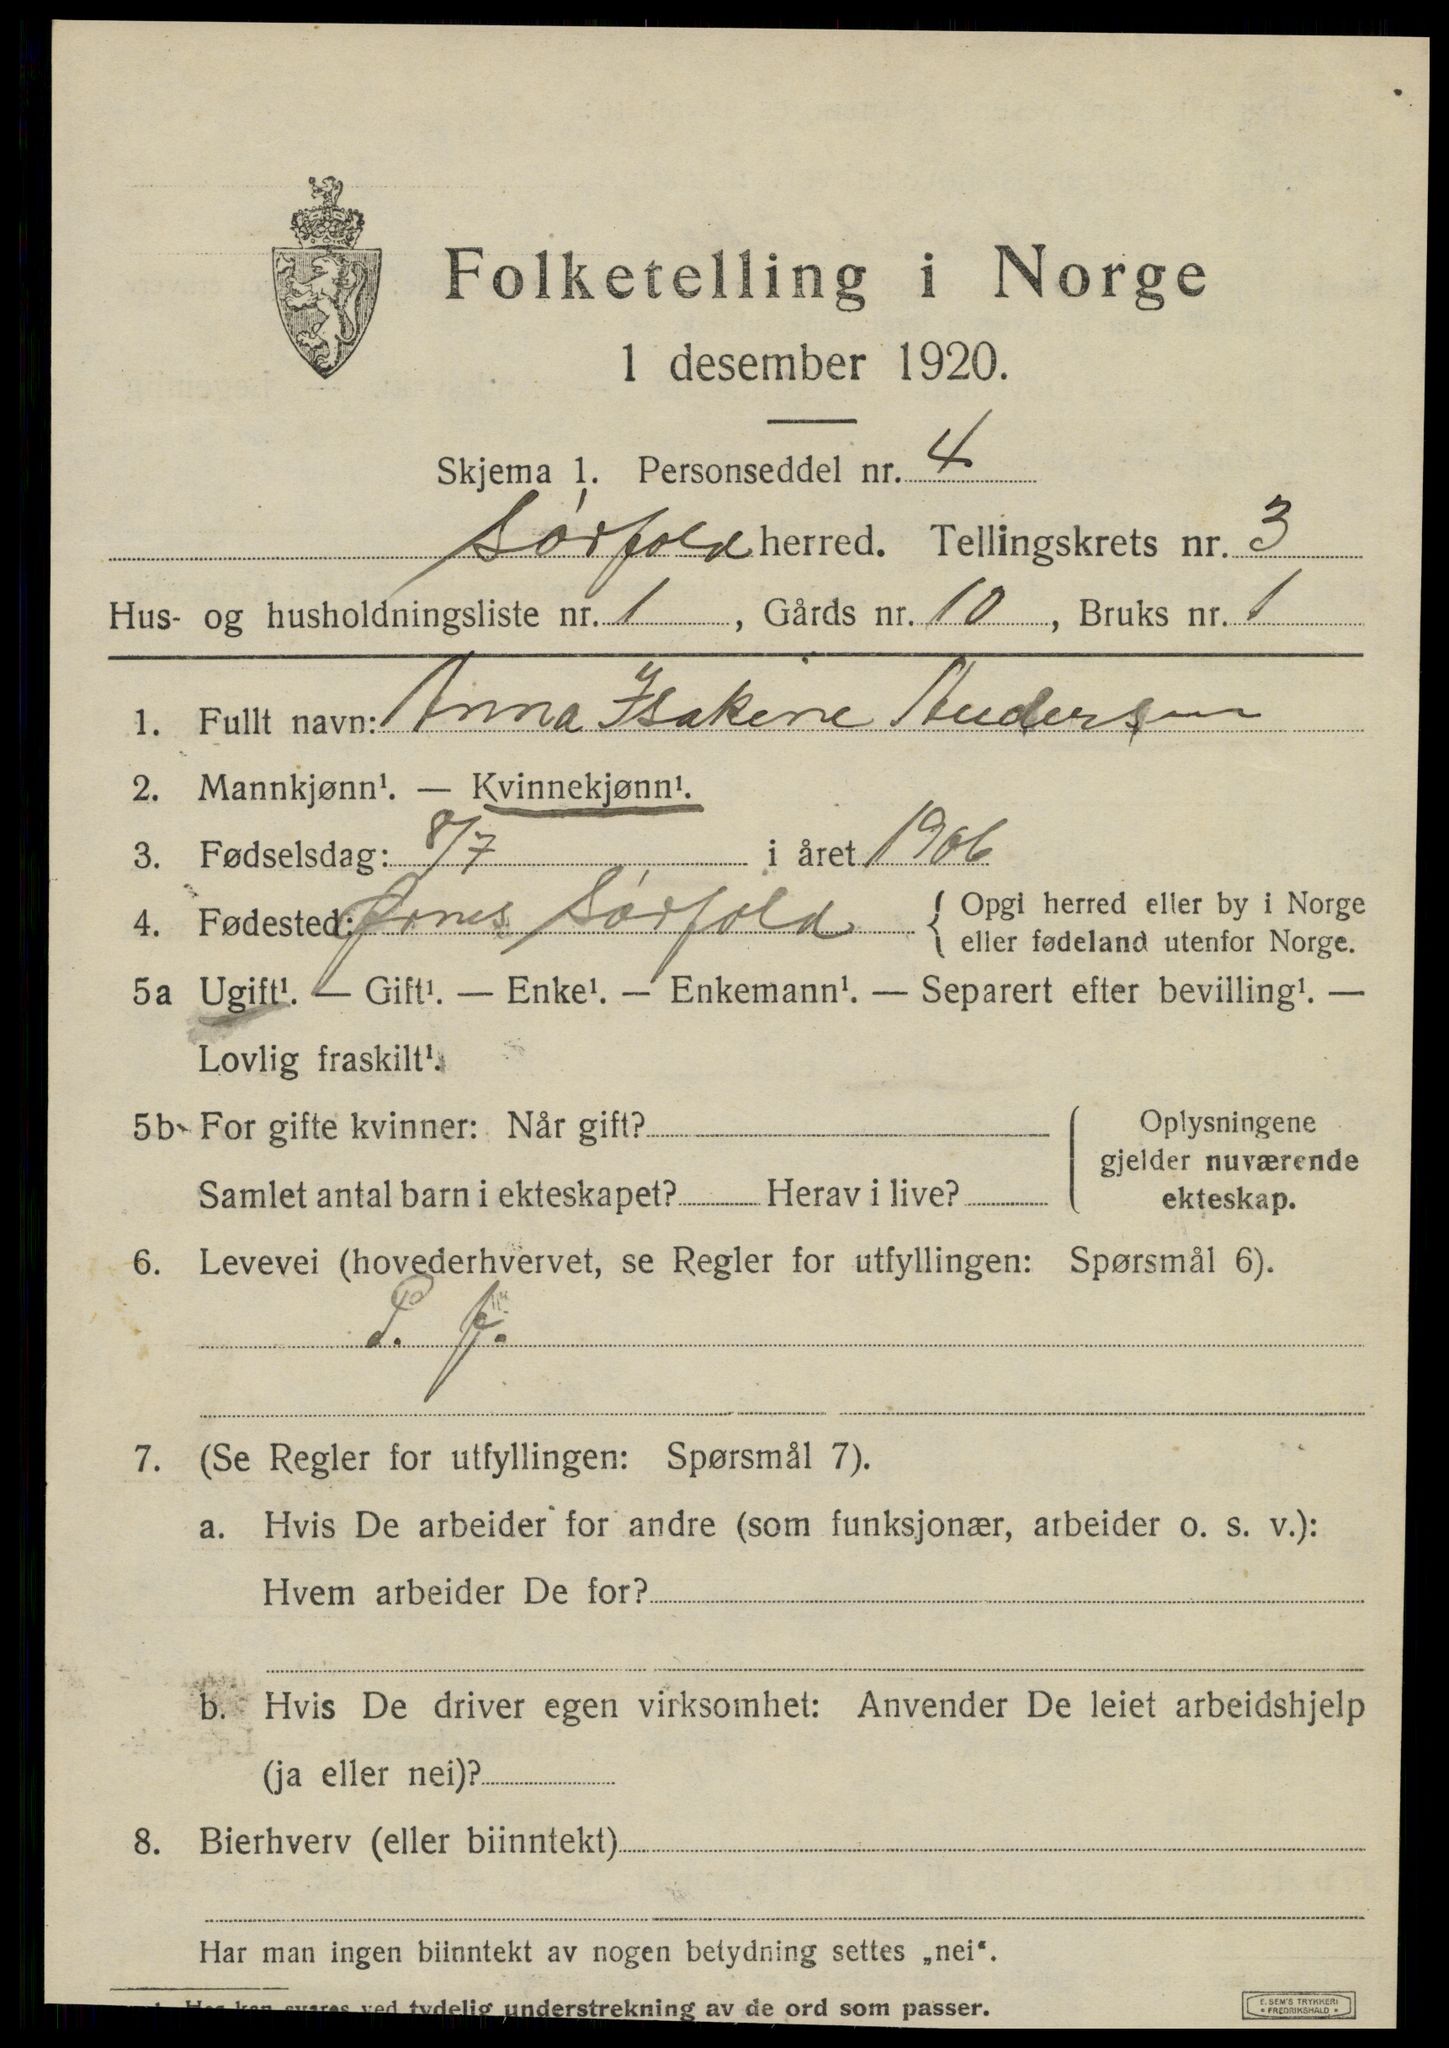 Folketelling i Norge
1 desember 1920.
Skjema 1. Personseddel nr. 4
Sørfold herred. Tellingskrets nr. 3
Hus- og husholdningsliste nr. 1, Gårds nr. 10, Bruks nr. 1
1. Fullt navn: Anna Isakine Andersen
2. Mannkjønn¹. — Kvinnekjønn¹.
3. Fødselsdag: 8/7 i året 1906
4. Fødested: Sørfold { Opgi herred eller by i Norge
eller fødeland utenfor Norge.
5a Ugift¹. — Gift¹. — Enke¹. — Enkemann¹. — Separert efter bevilling¹. —
Lovlig fraskilt¹.
5b For gifte kvinner: Når gift?
Samlet antal barn i ekteskapet? Herav i live?
Oplysningene
gjelder nuværende
ekteskap.
6. Levevei (hovederhvervet, se Regler for utfyllingen: Spørsmål 6).
P. f.
7. (Se Regler for utfyllingen: Spørsmål 7).
a. Hvis De arbeider for andre (som funksjonær, arbeider o. s. v.):
Hvem arbeider De for?
b. Hvis De driver egen virksomhet: Anvender De leiet arbeidshjelp
(ja eller nei)?
8. Bierhverv (eller biinntekt)
Har man ingen biinntekt av nogen betydning settes „nei“.
svares ved tydelig understrekning av de ord som passer.
E. SEM'S TRYKKERI
• FREDRIKSHALD •